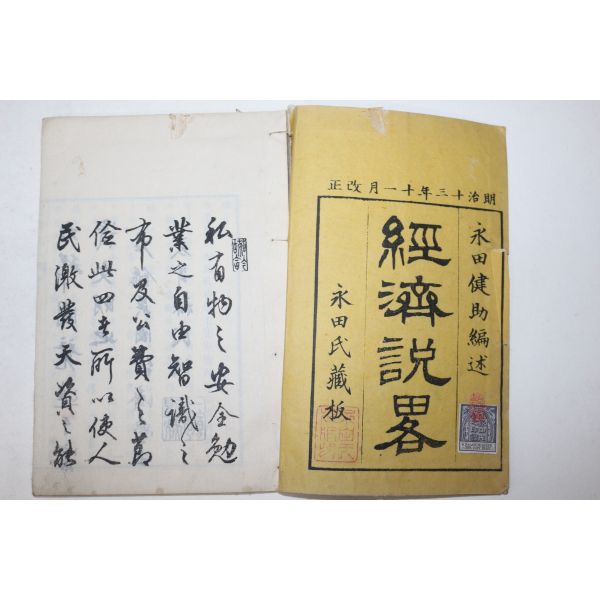 明治十三年十一月改正
永田健助編述
經濟説畧
永田氏藏板
私有物之安全勉
業之自由智識之
布及公費之節
儉此四者所以使人
民激發天資之能